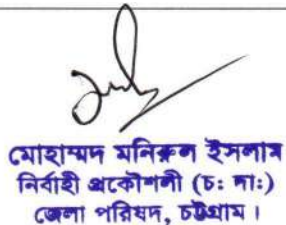 মোহাম্মদ মনিরুল ইসলাম
নির্বাহী প্রকৌশলী (চ: দা:)
জেলা পরিষদ, চট্টগ্রাম ।